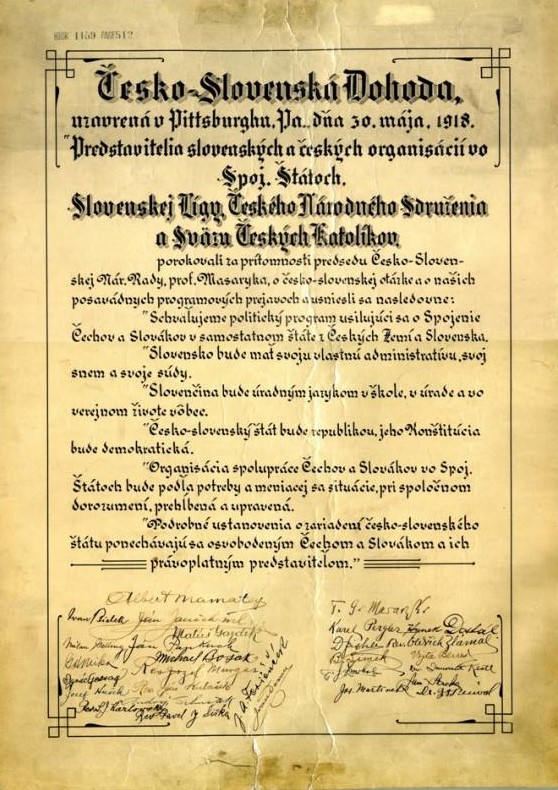 BOOK 1159 PAGE 512
Česko-Slovenská Dohoda,
uzavrená v Pittsburghu, Pa., dňa 30. mája, 1918.
"Predstavitelia slovenských a českých organisácií vo
Spoj. Štátoch,
Slovenskej Ligy, Českého Národného Sdruženia
a Sväzu Českých Katolíkov,
porokovali za prítomnosti predsedu Česko-Sloven-
skej Nár. Rady, prof. Masaryka, o česko-slovenskej otázke a o našich
posavádnych programových prejavoch a usniesli sa nasledovne:
"Schvaľujeme politický program usilujúci sa o Spojenie
Čechov a Slovákov v samostatnom štáte z Českých Zemí a Slovenska.
"Slovensko bude mať svoju vlastnú administratívu, svoj
snem a svoje súdy.
"Slovenčina bude úradným jazykom v škole, v úrade a vo
verejnom živote vôbec.
"Česko-slovenský štát bude republikou, jeho Konštitúcia
bude demokratická.
"Organisácia spolupráce Čechov a Slovákov vo Spoj.
Štátoch bude podľa potreby a meniacej sa situácie, pri spoločnom
dorozumení, prehĺbená a upravená.
"Podrobné ustanovenia o zariadení česko-slovenského
štátu ponechávajú sa osvobodeným Čechom a Slovákom a ich
právoplatným predstaviteľom."
Albert Mamatey
T. G. Masaryk
Ivan Bielek Ján Janček ml.
Karel Pergler Hynek Dostál
Matúš Gazdík
Milan Getting
Michael Bosák
Josef Hušek
Jos. Martinek
Rev. Pavel J. Šiška